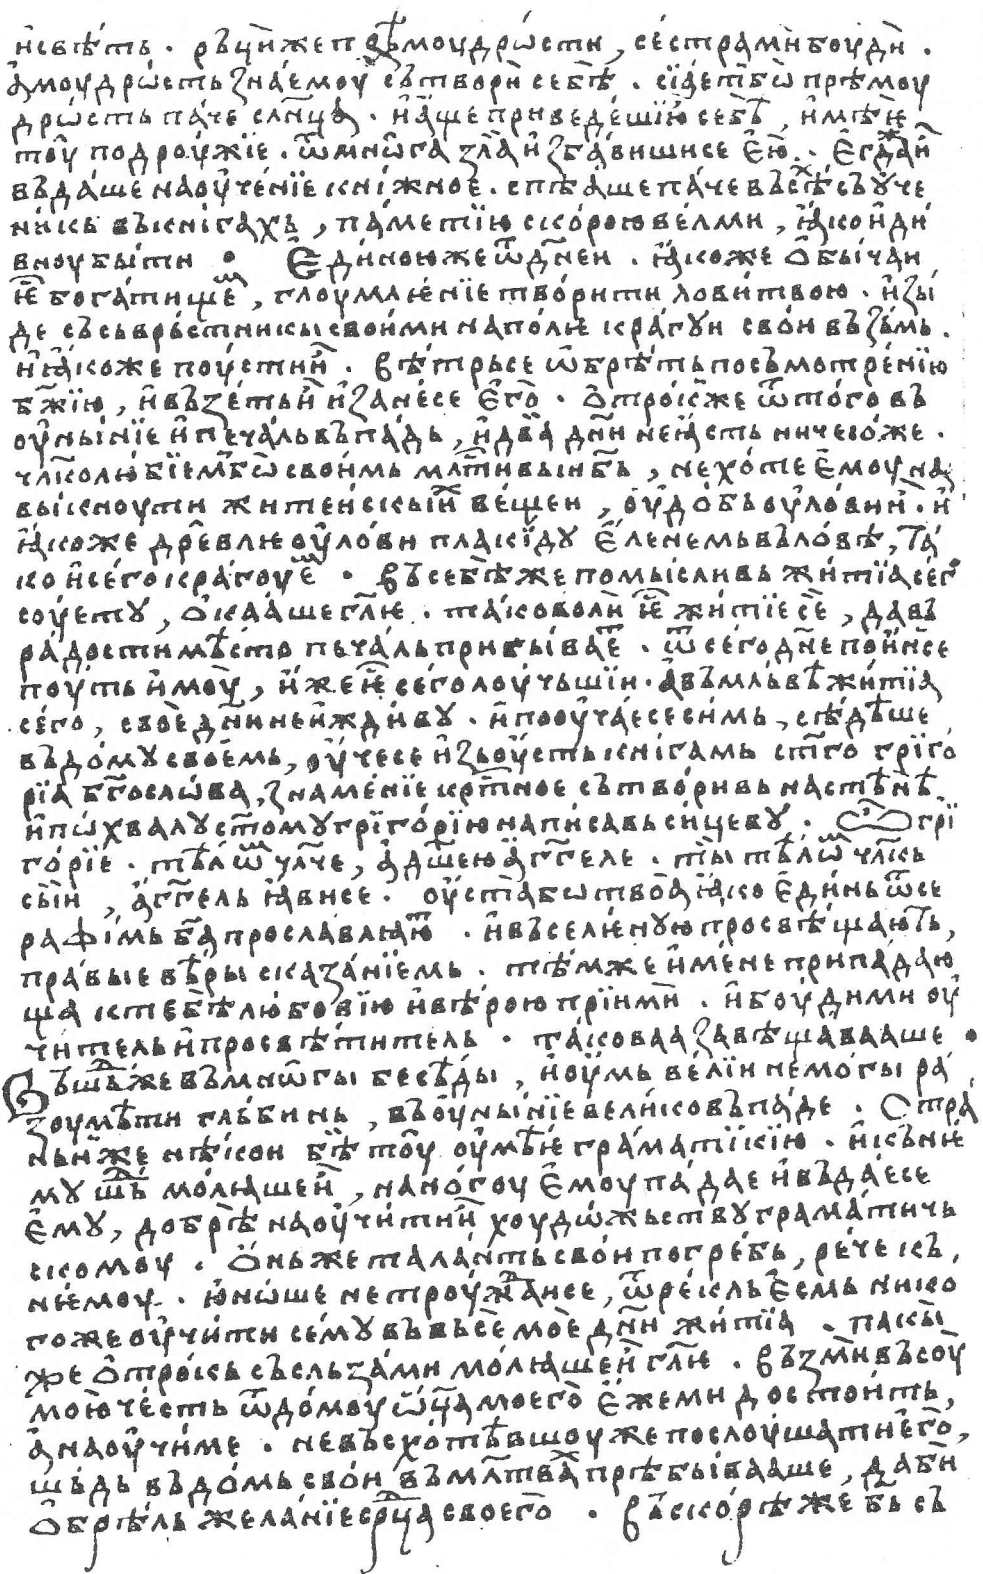 и свѣтъ · рьци же прѣмоудрости, сестра ми боуди ·
а моудрость знаемоу сътвори себѣ · сїает бо прѣмоу
дрость паче слнца · и аще приведеши ю себѣ, имѣти
тоу подроужїе · ѿ мнѡга зла избавиши се ею · Егда и
въдаше на оученїе книжное · спѣаше паче въсѣх съуче
никь въ книгахъ, паметїю скорою велми, ꙗко и ди
вноу быти · Единою же ѿ днеи · ꙗкоже обычаи
ѥ богатищем, глоумлѥнїе творити ловитвою · изы
де съ съврьстникы своими на полѥ крагуи свои възьмь ·
и ꙗкоже поустити · вѣтрь се ѡбрѣть по съмотренїю
бжїю, и въземь и занесе его · отрок же ѿ того въ
оунынїе и печаль въпадь, и два дни не ꙗсть ничесоже ·
члколюбїем бо своимь млтивыи бъ, не хоте емоу на
выкноути житеискыих вещеи, оудобь оулови и · и
ꙗкоже древлѥ оулови плакїду еленемь въ ловѣ, та
ко и сего крагоуем · въ себѣ же помысливь житїа сего
соуету, окаашесе глѥ · таково ли ѥ житїе се, да въ
радости мѣсто печаль прибываеть · ѿ сего дне поиму се
поуть имоу, иже ѥ сего лоучьшїи · а въ млъвѣ житїа
сего, свое дни не иждиву · и пооучае се симь, сѣдѣше
въ дому своемь, оуче се изьоусть книгамь стго грїго
рїа бгослова, знаменїе крстное сътворивь на стѣнѣ
и похвалу стому грїгорїю написавь сицеву · Ѽ грї
горїе · тѣлѡм члче, а дшею аггеле · ты тѣлѡм члкь
сыи, аггель ꙗви се · оуста бо твоа ꙗко единь ѿ се
рафїмь ба прославлꙗють · и въселеную просвѣщають,
правые вѣры сказанїемь · тѣмже и мене припадаю
ща к тебѣ любовїю и вѣрою прїими · и боуди ми оу
читель и просвѣтитель · таковаа завѣщаваше ·
Въшьд же въ мнѡгы бесѣды, и оумь велїи не могы ра
зоумѣти глъбинь, въ оунынїе велико въпаде · Стра
ньни же нѣкои бѣ тоу оумѣѥ граматїкїю · и к нѥ
му шьд молꙗше и, на ногоу емоу падае и въдае се
ему, добрѣ наоучити и хоудожьству граматичь
скомоу · Онь же таланть свои погребь, рече къ
нѥмоу · юноше не троуждаи се, ѿрекль есмь нико
гоже оучити сему въ въсе мое дни житїа · пакы
же отрокь съ сльзами молꙗше и глѥ · възми въсоу
мою честь ѿ домоу оца моего еже ми достоить,
а наоучи ме · не въсхотѣвшоу же послоушати его,
шьдь въ домь свои въ млтвах прѣбываше, да би
обрѣль желанїе срдца своего · въскорѣ же бъ съ